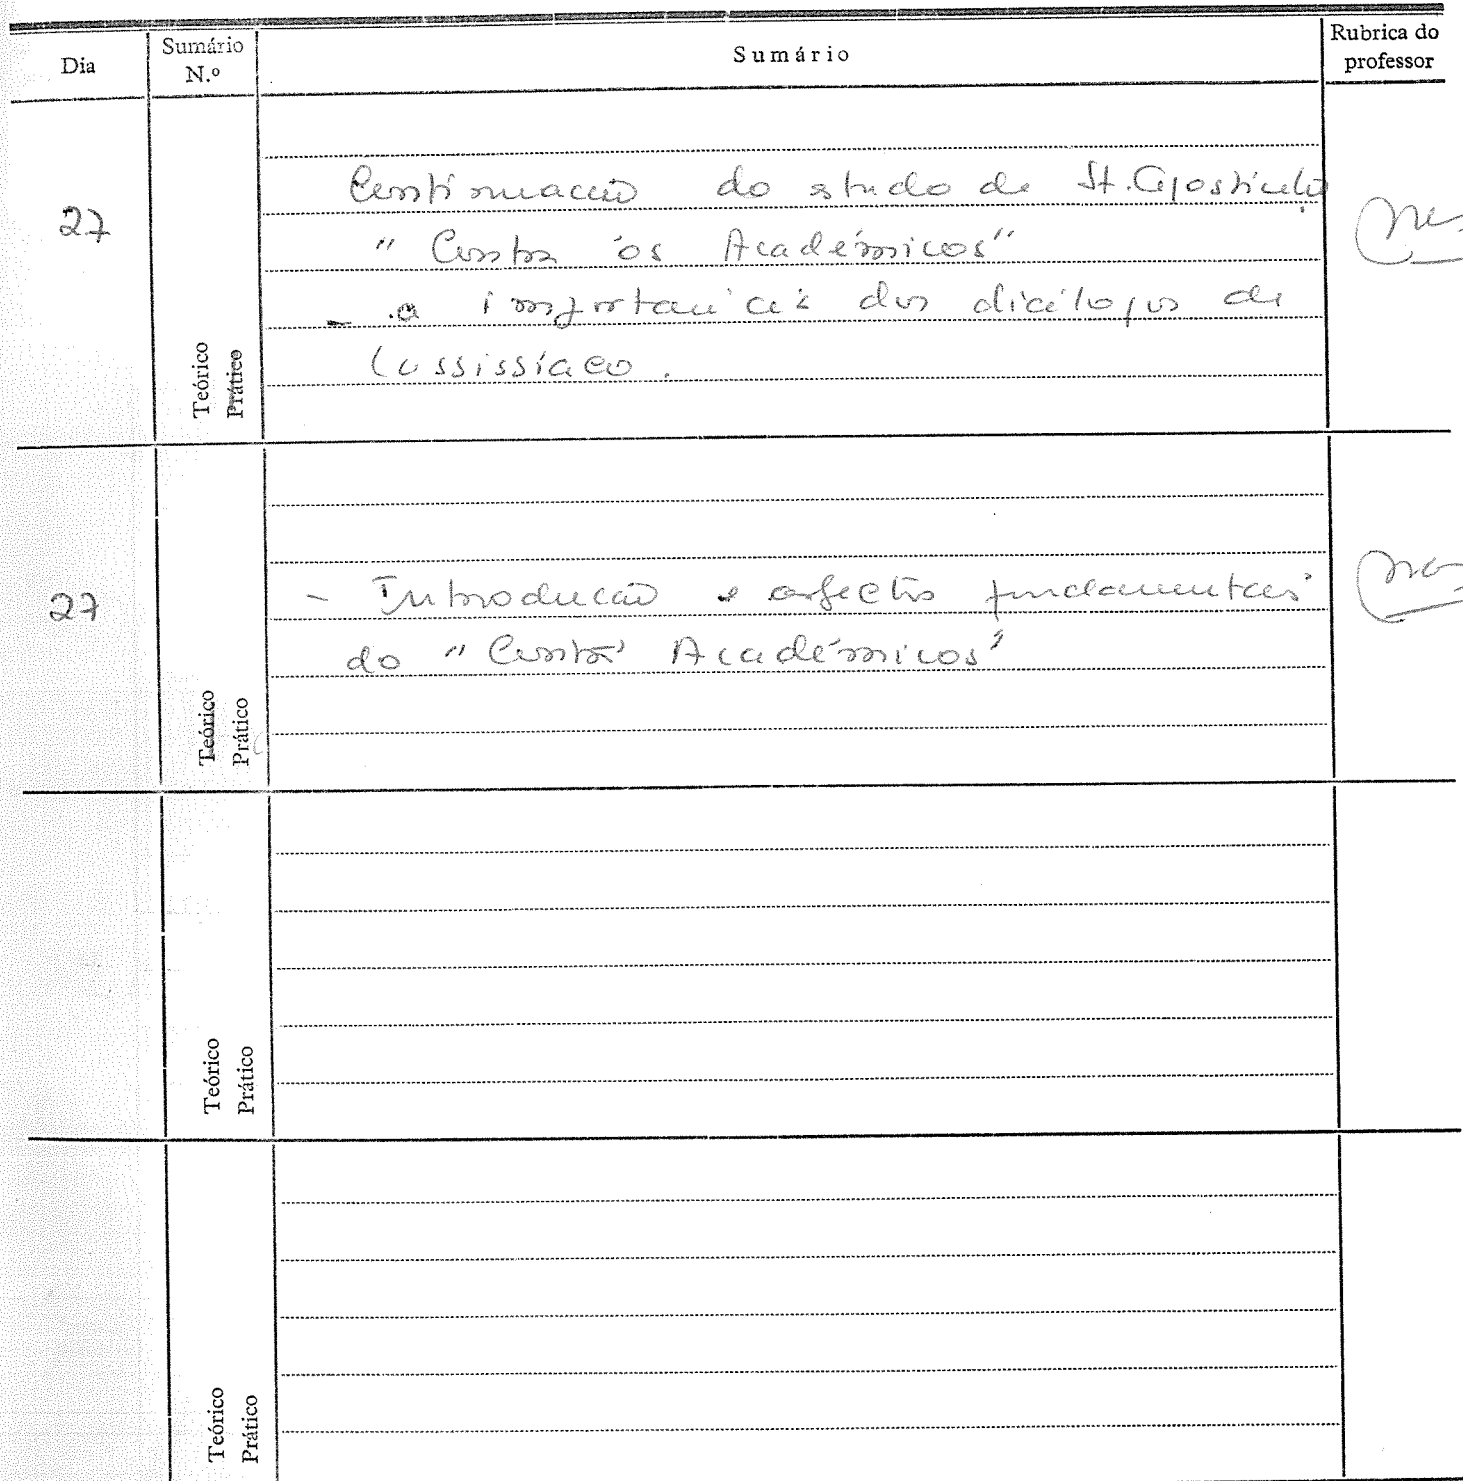 Dia
Sumário N.º
Sumário
Rubrica do professor
27
Continuação do estudo de St. Agostinho
"Contra os Académicos"
- a importância dos diálogos de
Cassissíaco.
Teórico
Prático
27
- Introdução e aspectos fundamentais
do "Contra Académicos"
Teórico
Prático
Teórico
Prático
Teórico
Prático